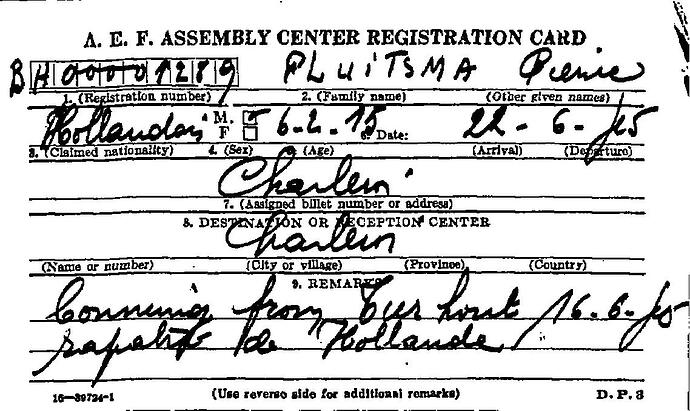 A. E. F. ASSEMBLY CENTER REGISTRATION CARD
BH000001289 PLUITSMA Pierre
1. (Registration number) 2. (Family name) (Other given names)
Hollandais M. F 6-2-15 6. Date: 22-6-45
3. (Claimed nationality) 4. (Sex) 5. (Age) (Arrival) (Departure)
Charleroi
7. (Assigned billet number or address)
8. DESTINATION OR RECEPTION CENTER
Charleroi
(Name or number) (City or village) (Province) (Country)
9. REMARKS
Comming from 16-6-45
de Hollande
16—39724-1 (Use reverse side for additional remarks) D. P. 3